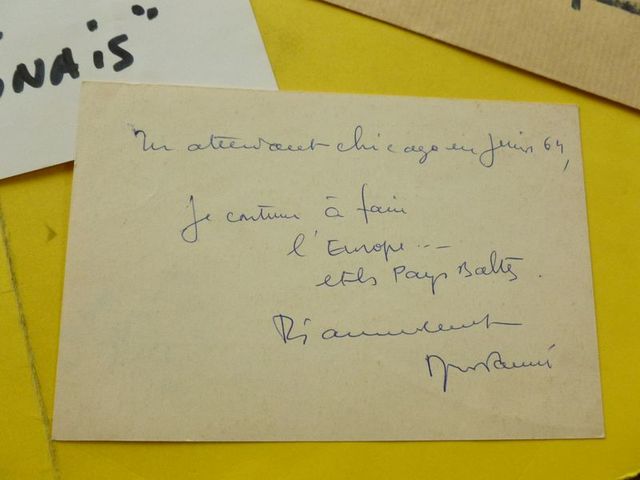 NAIS"
En attendant chicago en Juin 64,
Je continue à faire
l'Europe ...
et les Pays Baltes.